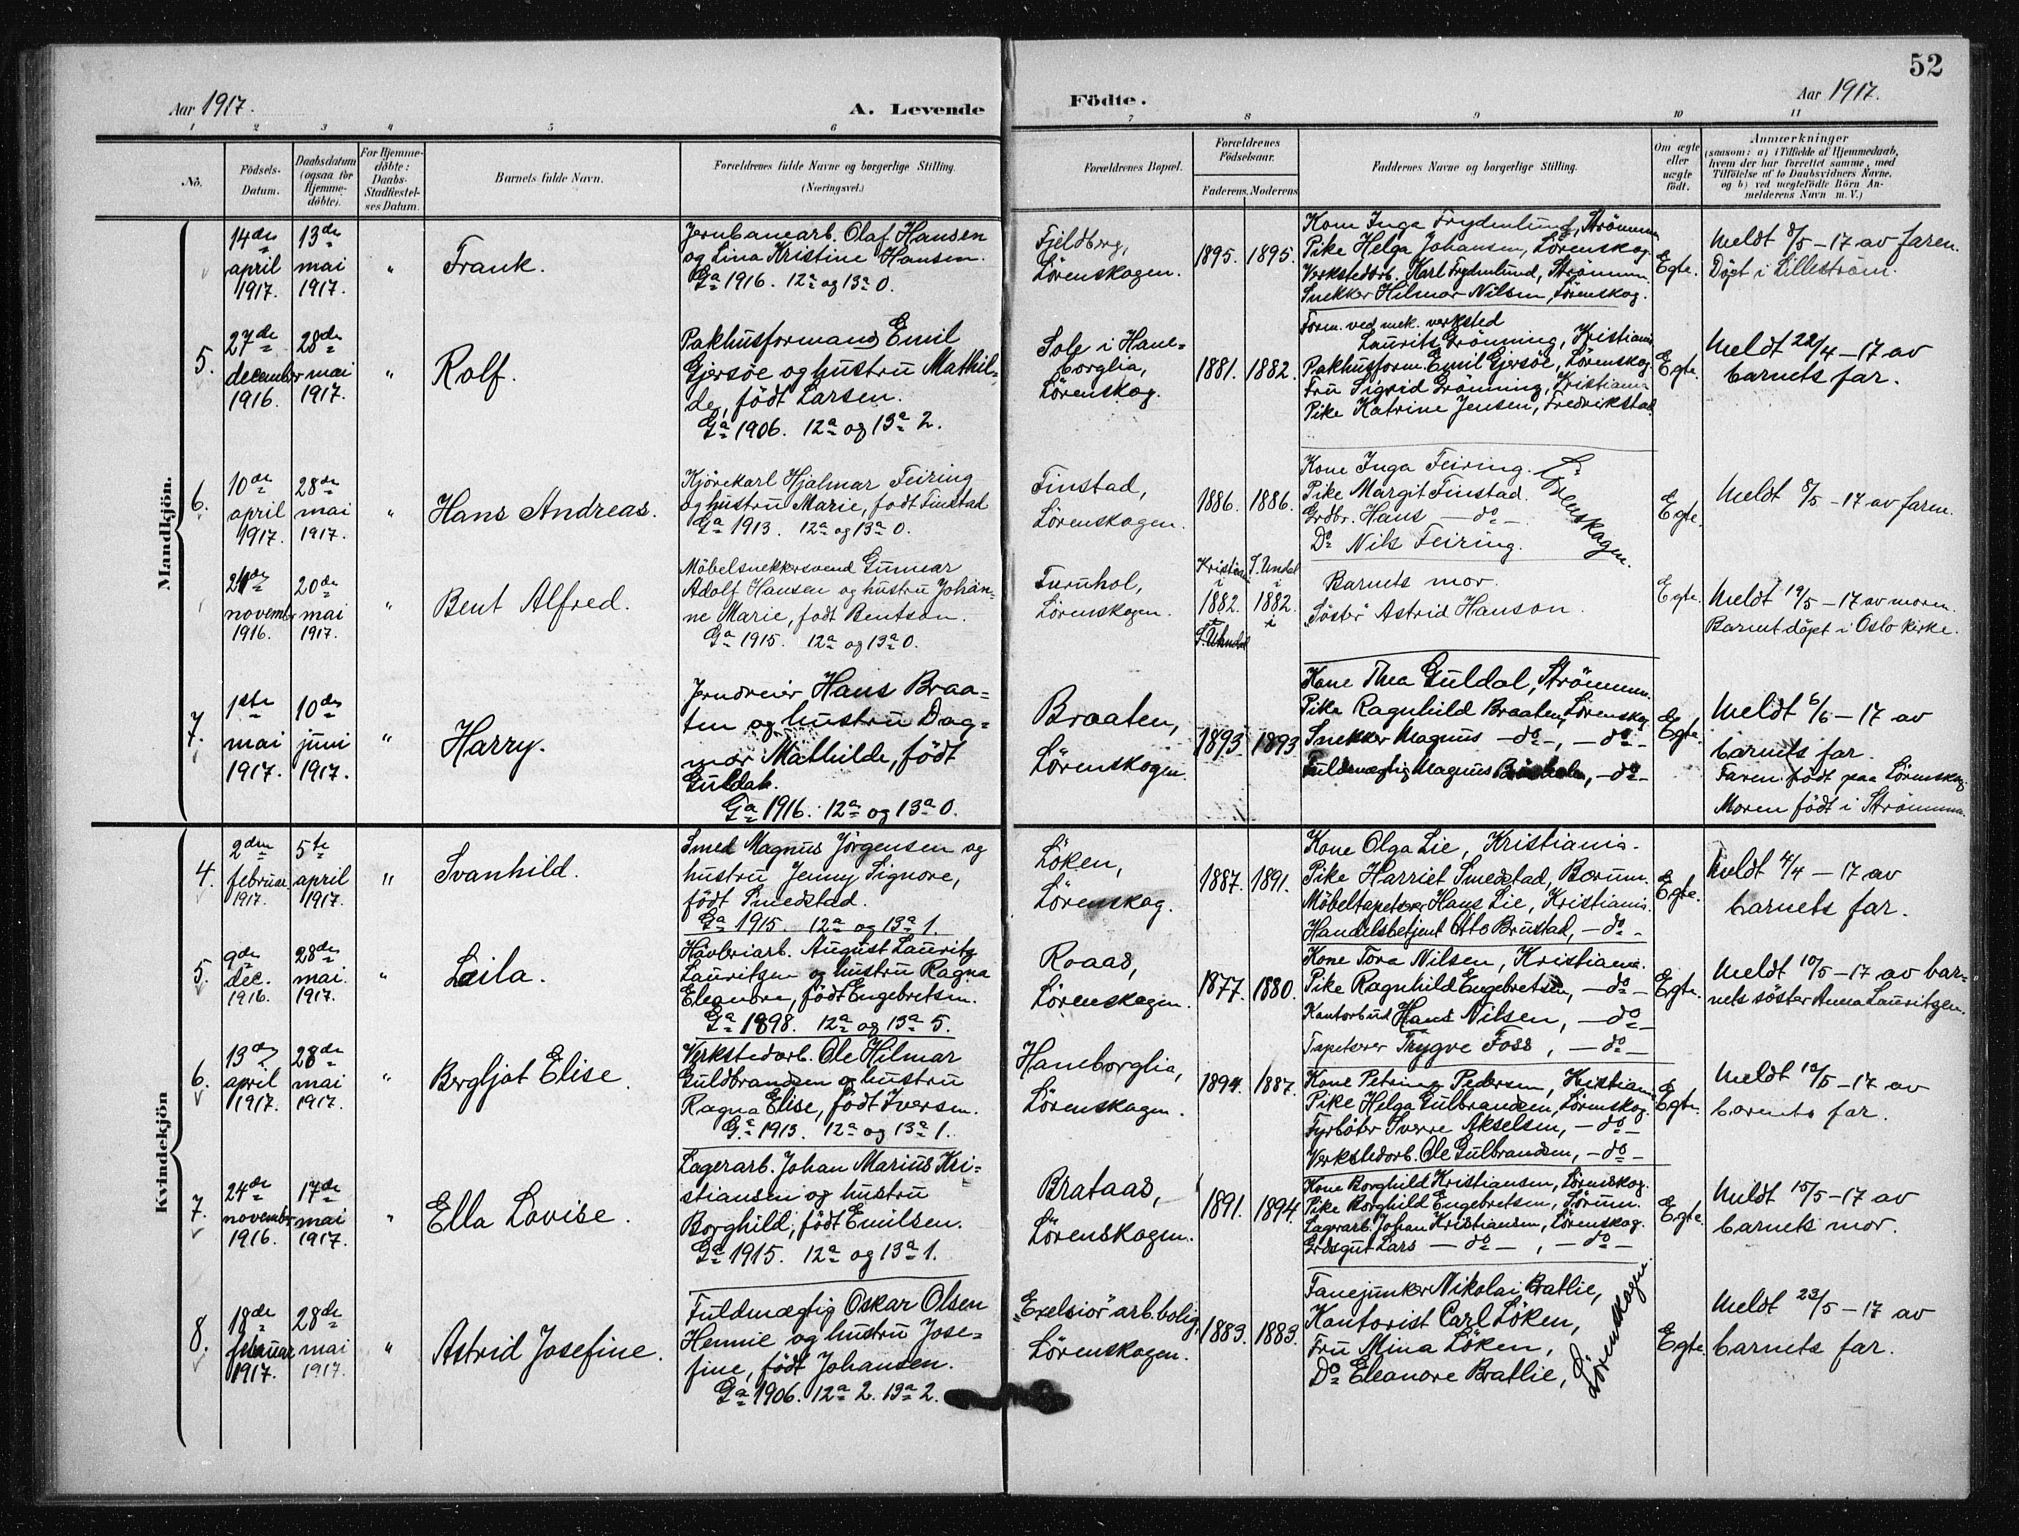 52
Aar 1917.
A. Levende
Födte.
Aar 1917.
1 2 3 4 5 6 7 8 9 10 11
No.
Födsels-
Datum.
Daabsdatum
(ogsaa for
Hjemme-
döbte).
For Hjemme-
döbte:
Daabs-
Stadfæstel-
ses Datum.
Barnets fulde Navn.
Forældrenes fulde Navne og borgerlige Stilling.
(Næringsvei.)
Forældrenes Bopæl.
Forældrenes
Födselsaar.
Faderens. Moderens.
Faddernes Navne og borgerlige Stilling.
Om ægte
eller
uægte
födt.
Anmærkninger
(saasom: a) i Tilfælde af Hjemmedaab,
hvem der har forrettet samme, med
Tilföielse af to Daabsvidners Navne,
og b) ved uægtefödte Börn An-
melderens Navn m. V.)
Mandkjön.
14de
april
1917.
13de
mai
1917.
"
Frank.
Jernbanearb. Olaf Hansen
og Lina Kristine Hansen.
Ga 1916. 12a og 13a 0.
Fjeldberg,
Lörenskogen.
1895. 1895.
Kone Inga Frydenlund, Strömmen
Pike Helga Johansen, Lörenskog.
Verkstedarb. Karl Frydenlund, Strömmen.
Snekker Hilmar Nilsen, Lörenskog.
Egte.
Meldt 8/5 - 17 av faren.
Döpt i Lilleström.
5.
27de
december
1916.
28de
mai
1917.
"
Rolf.
Pakhusformand Emil
Gjersöe og hustru Mathil-
de, födt Larsen.
Ga 1906. 12a og 13a 2.
Sole i Hane-
borglia,
Lörenskog.
1881. 1882.
Form. ved mek. verksted
Laurits Grönning, Kristiania
Pakhusform. Emil Gjersöe, Lörenskog.
Fru Sigrid Grönning, Kristiania
Pike Katrine Jensen, Fredrikstad.
Egte.
Meldt 22/4 - 17 av
barnets far.
6.
10de
april
1917.
28de
mai
1917.
"
Hans Andreas.
Kjörekarl Hjalmar Feiring
og hustru Marie, födt Finstad
Ga 1913. 12a og 13a 0.
Finstad,
Lörenskogen.
1886. 1886.
Kone Inga Feiring.
Pike Margit Finstad.
Grdbr. Hans - do -
Do Nils Feiring.
Lörenskogen.
Egte.
Meldt 8/5 - 17 av faren.
24de
novembr
1916.
20de
mai
1917.
"
Bent Alfred.
Möbelsnekkersvend Gunnar
Adolf Hansen og hustru Johan-
ne Marie, födt Bentsen.
Ga 1915. 12a og 13a 0.
Furuhol,
Lörenskogen.
1882. 1882.
Barnets mor.
"Söster" Astrid Hanson.
Egte.
Meldt 19/5 - 17 av moren.
Barnet döpt i Oslo kirke.
7.
1ste
mai
1917.
10de
juni
1917.
"
Harry.
Jerndreier Hans Braa-
ten og hustru Dag-
mar Mathilde, födt
Guldal.
Ga 1916. 12a og 13a 0.
Braaten,
Lörenskogen.
1893. 1893
Kone Thea Guldal, Strömmen.
Pike Ragnhild Braaten, Lörenskog
Snekker Magnus - do -, - do -
Fuldmægtig Magnus Braaten, - do -
Egte.
Meldt 6/6 - 17 av
barnets far.
Faren födt paa Lörenskog
Moren födt i Strömmen.
Kvindekjön
4.
2den
februar
1917.
5te
april
1917.
"
Svanhild.
Smed Magnus Jörgensen og
hustru Jenny Signore,
födt Smedstad.
Ga 1915. 12a og 13a 1.
Löken,
Lörenskog.
1887. 1891.
Kone Olga Lie, Kristiania.
Pike Harriet Smedstad, Bærum.
Möbeltapetserer Hans Lie, Kristiania.
Handelsbetjent Otto Brustad, - do -
Egte.
Meldt 4/4 - 17 av
barnets far.
5.
9de
dec.
1916.
28de
mai.
1917.
"
Leila.
Høvleriarb. August Lauritz
Lauritsen og hustru Ragna
Eleanore, födt Engebretsen.
Ga 1898. 12a og 13a 5.
Roaas,
Lörenskogen.
1877. 1880.
Kone Tora Nilsen, Kristiania.
Pike Ragnhild Engebretsen, - do -
Kontorbud Hans Nilsen, - do -
Tapetserer Trygve Foss, - do -
Egte.
Meldt 10/5 - 17 av bar-
nets söster Anna Lauritzen.
6.
13de
april
1917.
28de
mai
1917.
"
Bergljot Elise.
Verkstedarb. Ole Hilmar
Guldbrandsen og hustru
Ragna Elise, födt Iversen.
Ga 1913. 12a og 13a 1.
Haneborglia,
Lörenskogen.
1894. 1887.
Kone Petrine Pedersen, Kristiania
Pike Helga Gulbrandsen, Lörenskog.
Fyrböter Sverre Akselsen, - do -
Verkstedarb. Ole Gulbrandsen, - do -
Egte.
Meldt 12/5 - 17 av
barnets far.
7.
24de
novembr
1916.
17de
mai
1917.
"
Ella Lovise.
Lagerarb. Johan Marius Kri-
stiansen og hustru
Borghild, födt Emilsen.
Ga 1915. 12a og 13a 1.
Brataas,
Lörenskogen.
1891. 1894.
Kone Borghild Kristiansen, Lörenskog.
Pike Borghild Engebretsen, Sörum.
Lagerarb. Johan Kristiansen, Lörenskog.
Grdsgut Lars - do -, - do -
Egte.
Meldt 15/5 - 17 av
barnets mor.
8.
18de
februar
1917.
28de
mai
1917.
"
Astrid Josefine.
Fuldmægtig Oskar Olsen
Hennie og hustru Jose-
fine, födt Johansen.
Ga 1906. 12a 2. 13a 2.
"Excelsior" arb.bolig,
Lörenskogen.
1883. 1883.
Fanejunker Nikolai Bratlie,
Kontorist Carl Löken,
Fru Mina Löken,
Do Eleanore Bratlie,
Lörenskogen.
Egte.
Meldt 23/5 - 17 av
barnets far.